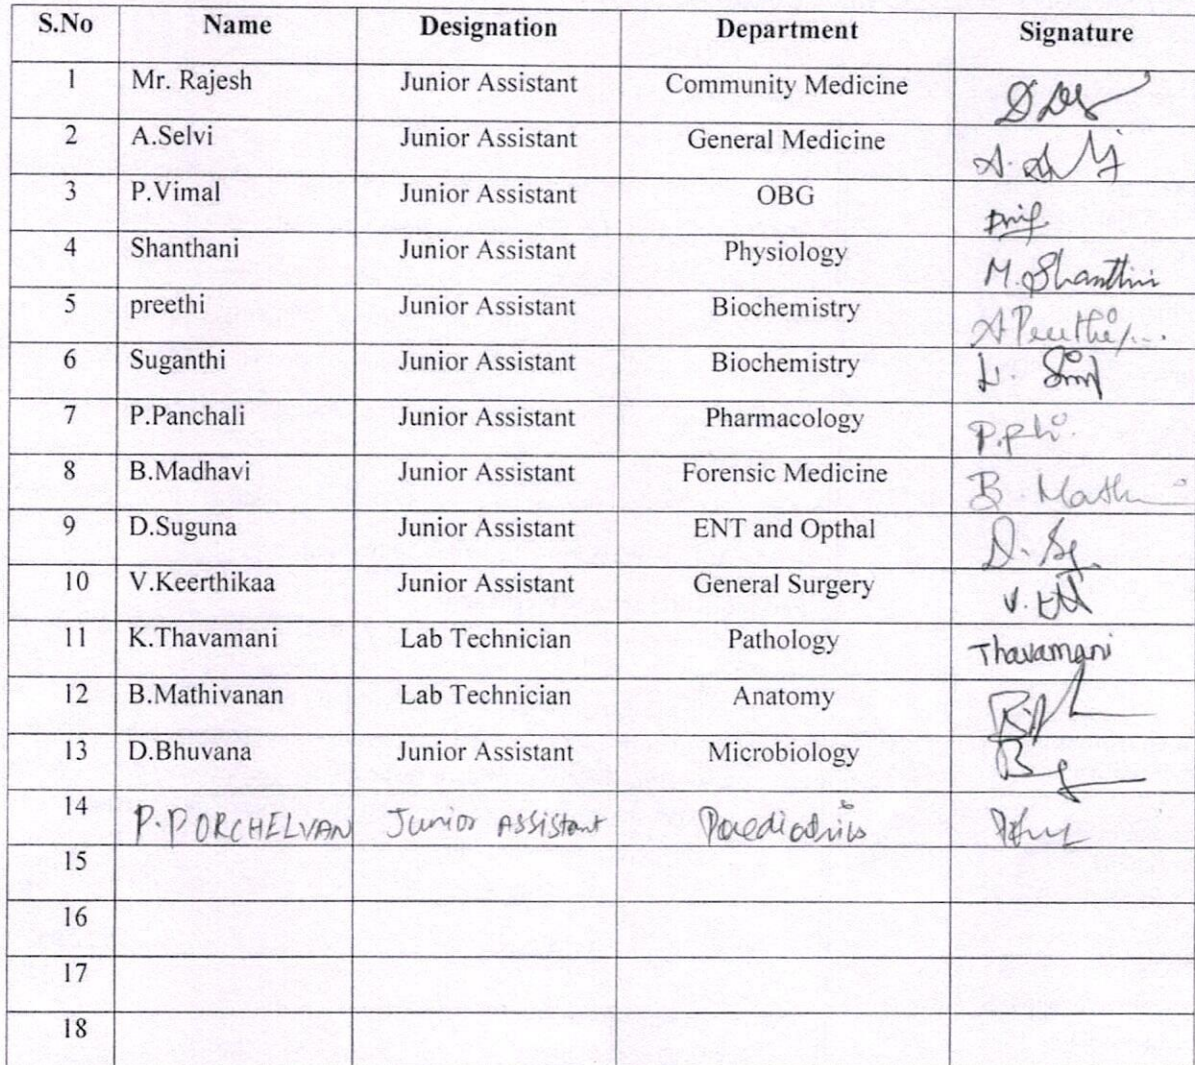 S.No Name Designation Department Signature
1 Mr. Rajesh Junior Assistant Community Medicine
2 A.Selvi Junior Assistant General Medicine
3 P.Vimal Junior Assistant OBG
4 Shanthani Junior Assistant Physiology M. Shanthini
5 preethi Junior Assistant Biochemistry A Preethi
6 Suganthi Junior Assistant Biochemistry
7 P.Panchali Junior Assistant Pharmacology
8 B.Madhavi Junior Assistant Forensic Medicine
9 D.Suguna Junior Assistant ENT and Opthal
10 V.Keerthikaa Junior Assistant General Surgery
11 K.Thavamani Lab Technician Pathology Thavamani
12 B.Mathivanan Lab Technician Anatomy
13 D.Bhuvana Junior Assistant Microbiology
14 P.PORCHELVAN Junior Assistant Paediatrics
15
16
17
18